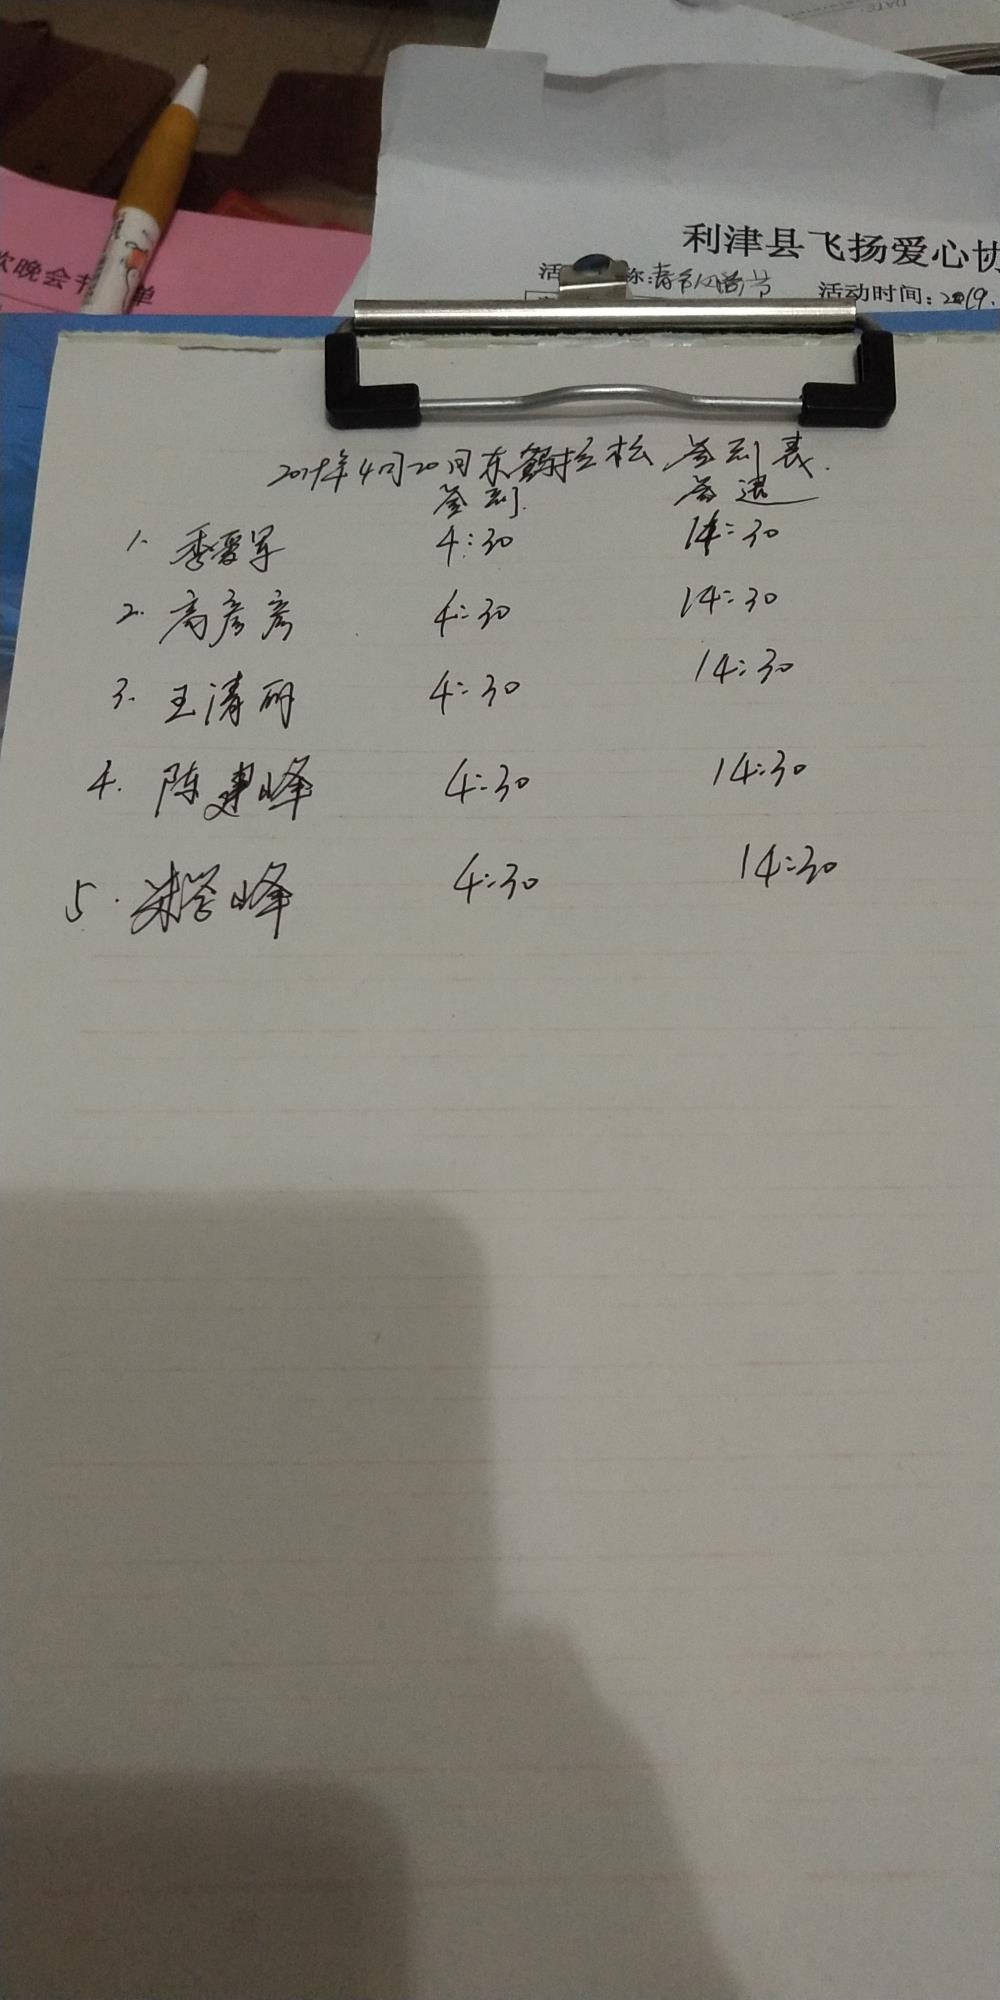 DATE
利津县飞扬爱心协
活 称:春 风筝节
活动时间: 2019.
晚会节 单
2019年4月20日东营马拉松 签到表.
签到. 签退
1. 季爱军 4:30 14:30
2. 高彦彦 4:30 14:30
3. 王清丽 4:30 14:30
4. 陈建峰 4:30 14:30
5. 学峰 4:30 14:30